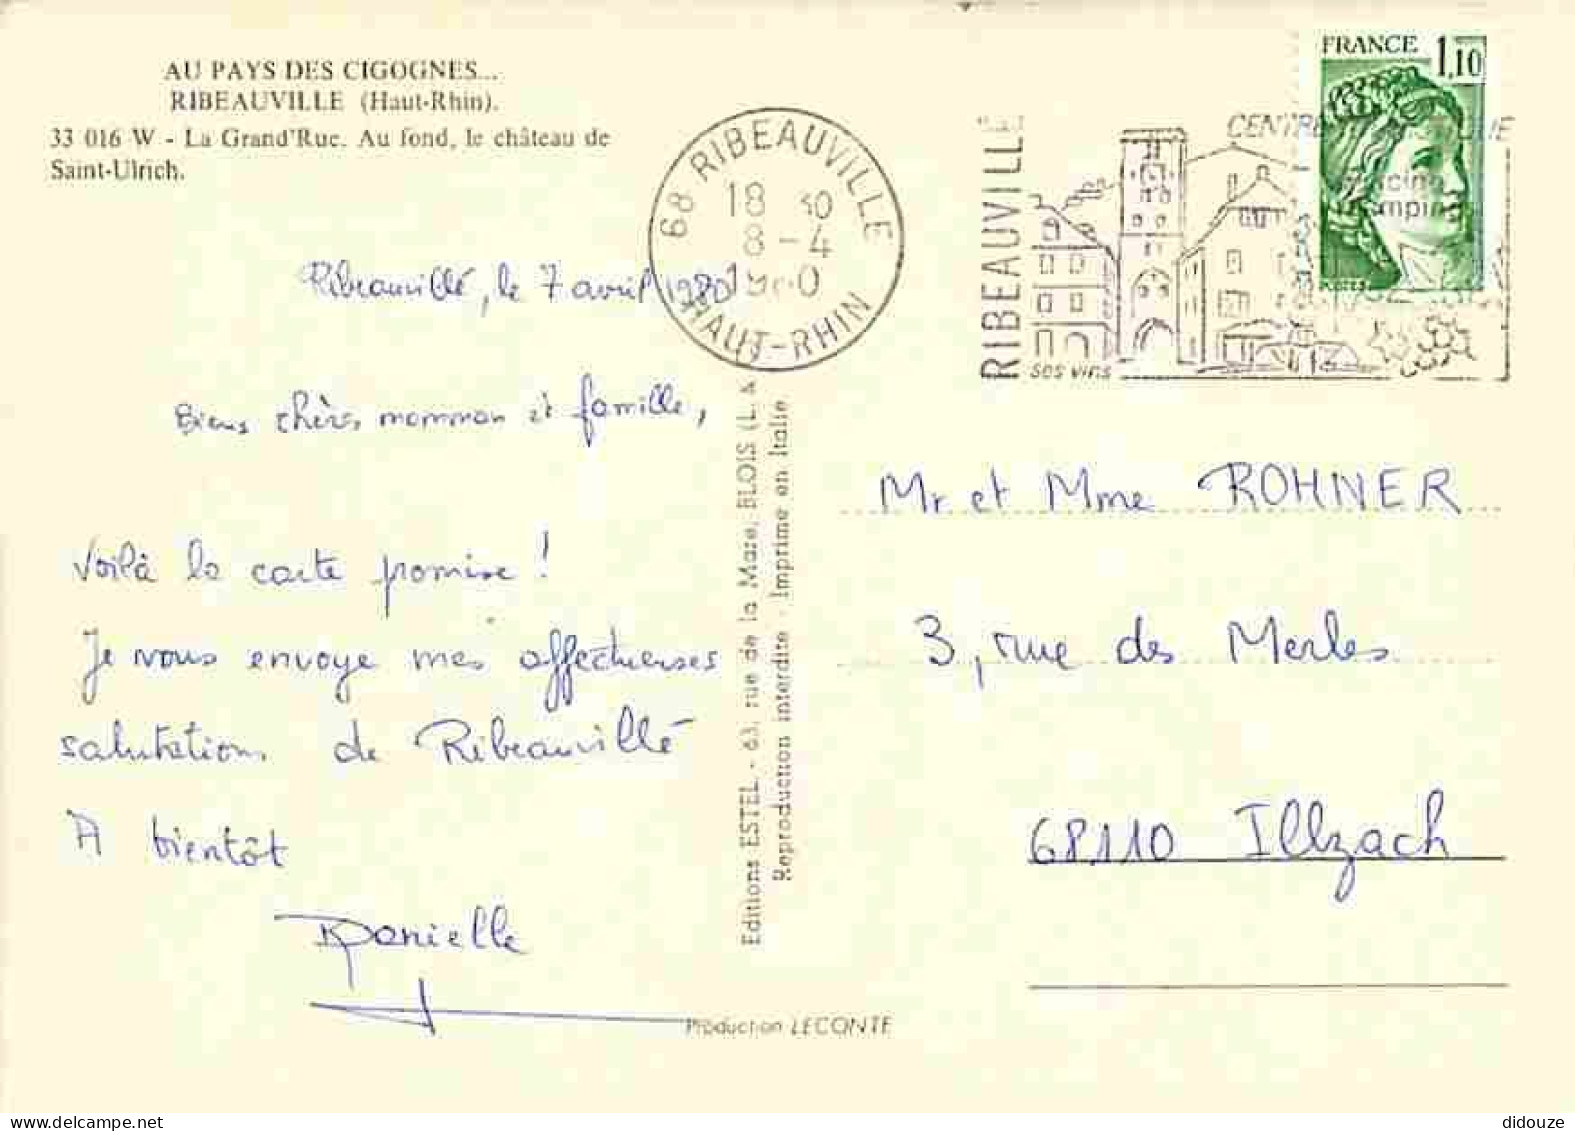 AU PAYS DES CIGOGNES...
RIBEAUVILLE (Haut-Rhin).
33 016 W - La Grand'Rue. Au fond, le château de
Saint-Ulrich.
Ribeauvillé, le 7 avril 1980
Biens chères momman et famille,
Voilà la carte promise !
Je vous envoye mes affectueuses
salutations de Ribeauvillé
A bientôt
Danielle
68 RIBEAUVILLE
18 30
8-4
1980
HAUT-RHIN
RIBEAUVILLE
CENTRE
ses vins
FRANCE 1,10
POSTES
Editions ESTEL - 63, rue de la Mare, BLOIS (L.
Reproduction interdite - Imprime en Italie
Production LECONTE
Mr et Mme ROHNER
3, rue des Merles
68110 Illzach
didouze